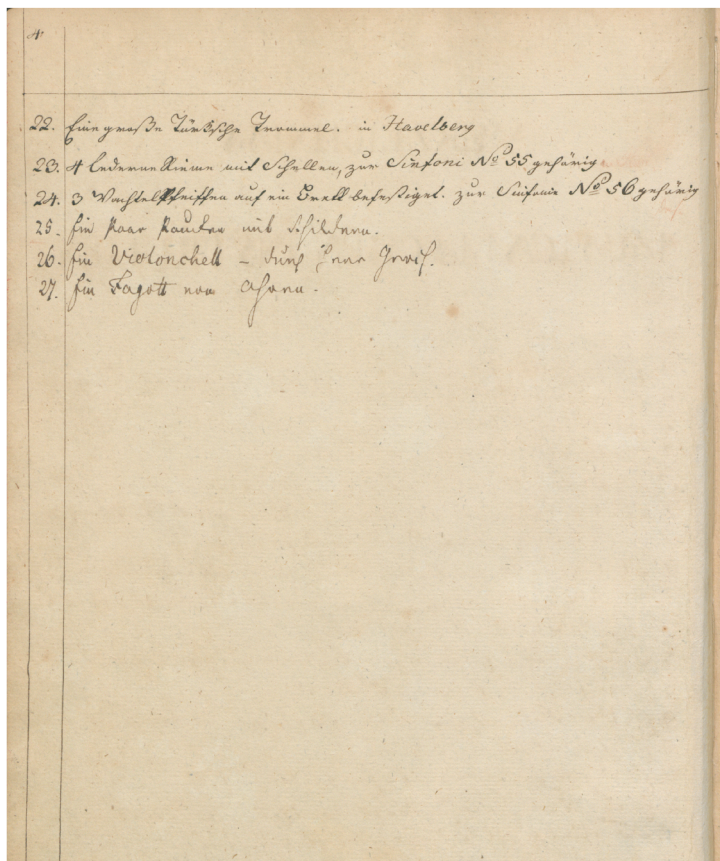 4
22. Eine große Türksche Trommel. in Havelberg
23. 4 lederne Rieme mit Schellen, zur Sinfoni No 55 gehörig
24. 3 Wachtelpfeiffen auf ein Brett befestiget. zur Sinfonie No 56 gehörig
25. Ein Paar Paucken mit
26. Ein Violonchell – durch Herr
27. Ein Fagott von